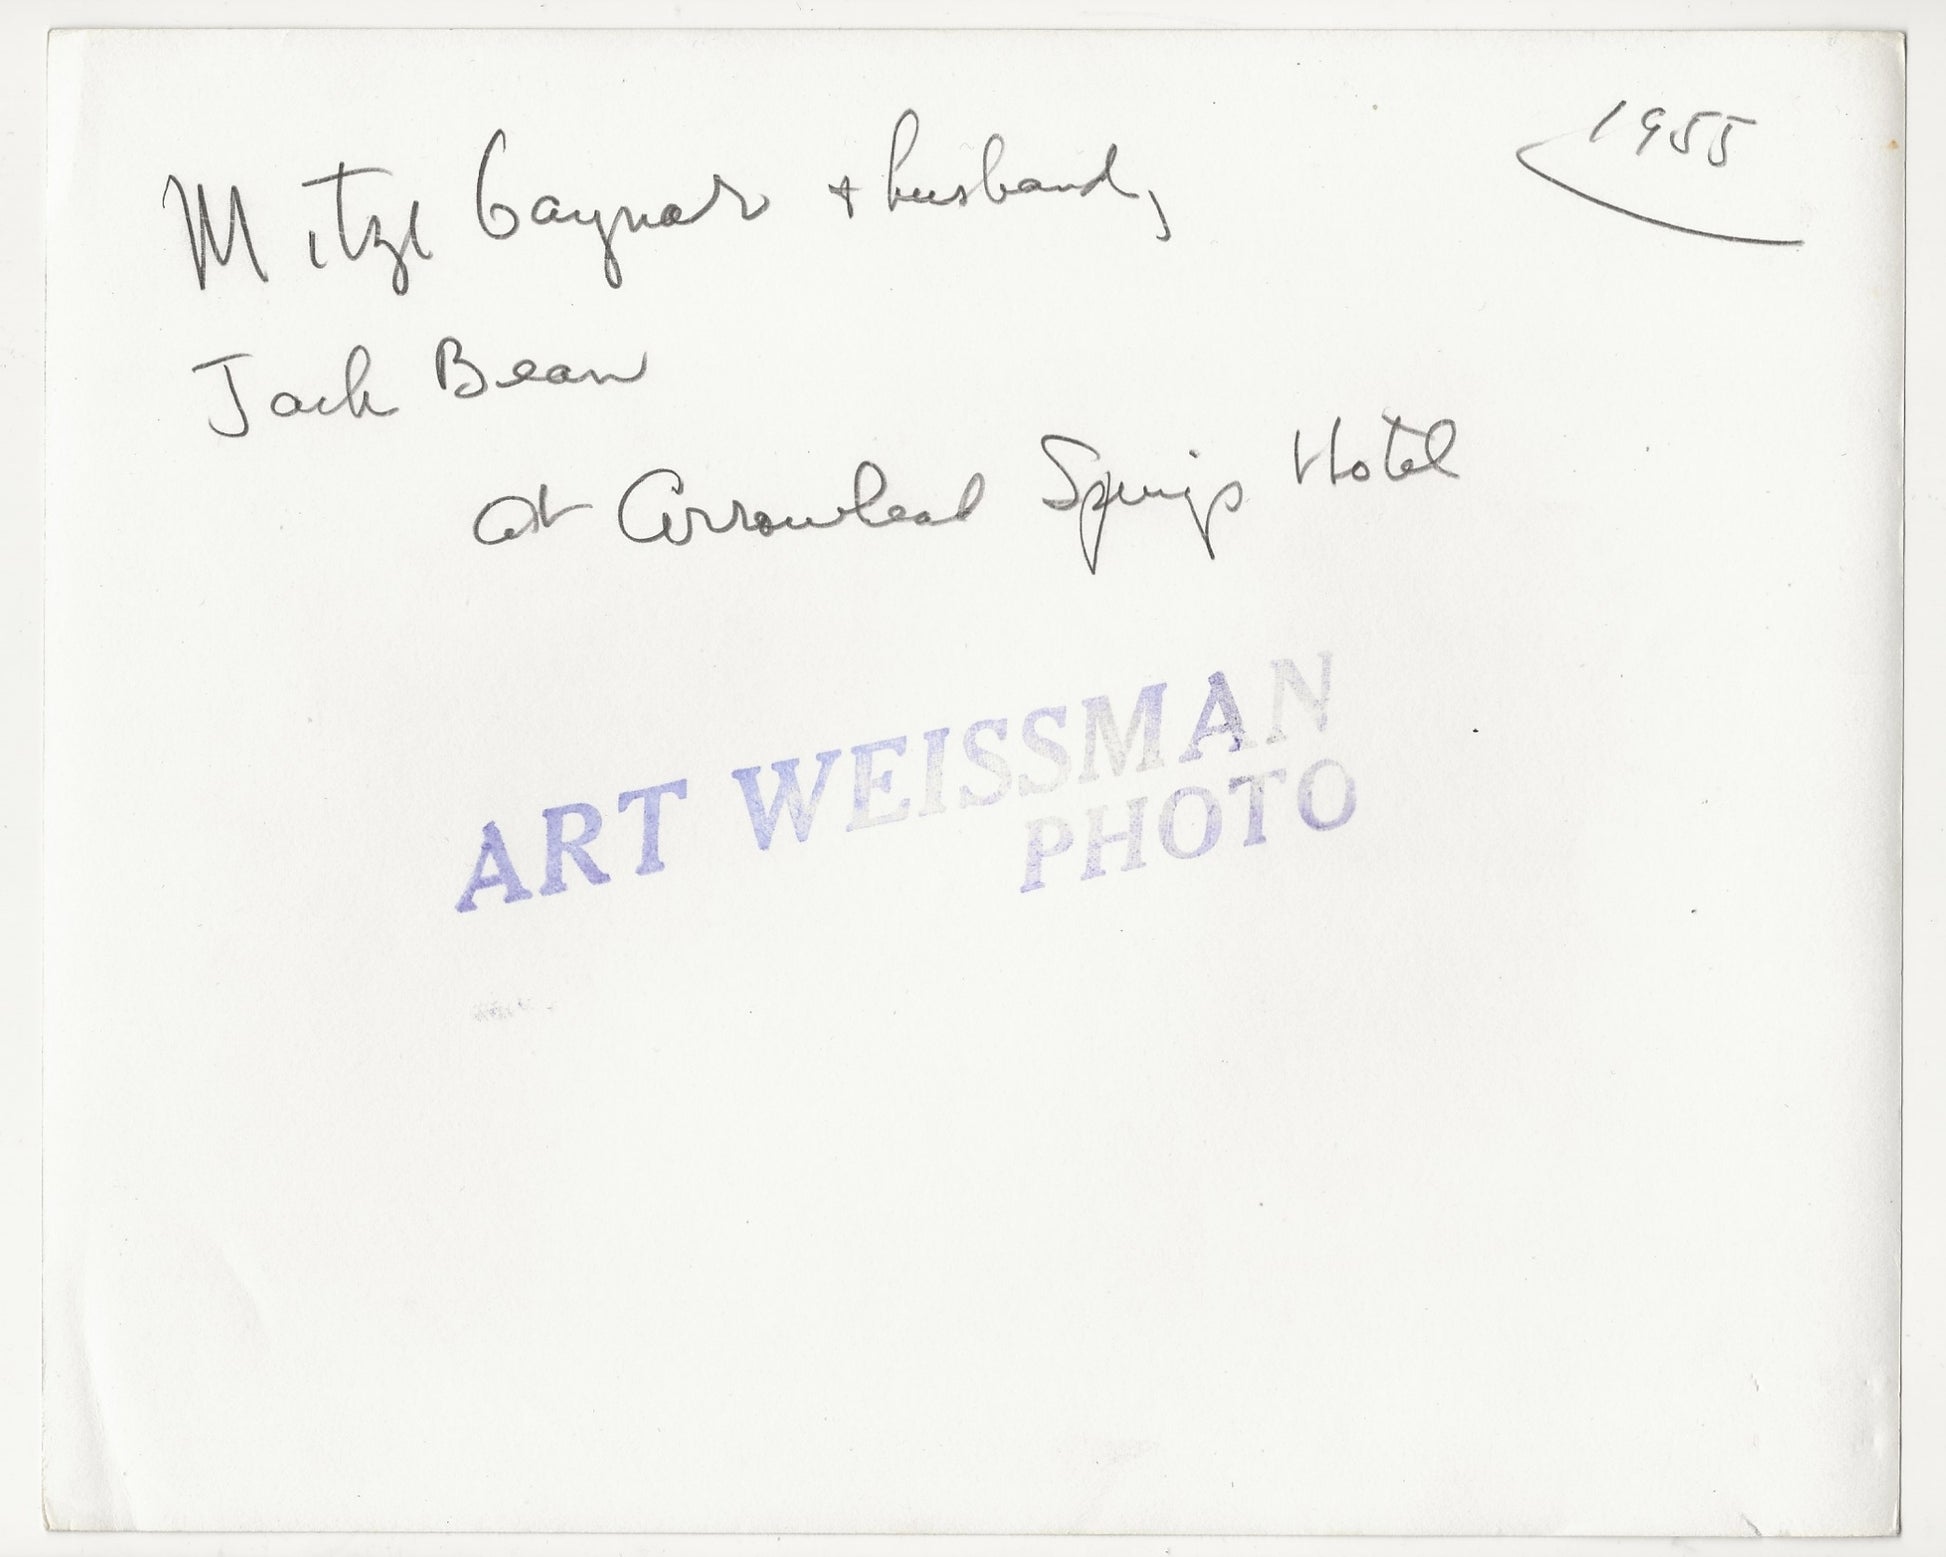 1955
Mitzi Gaynor + husband,
Jack Bean
at Arrowhead Springs Hotel
ART WEISSMAN
PHOTO